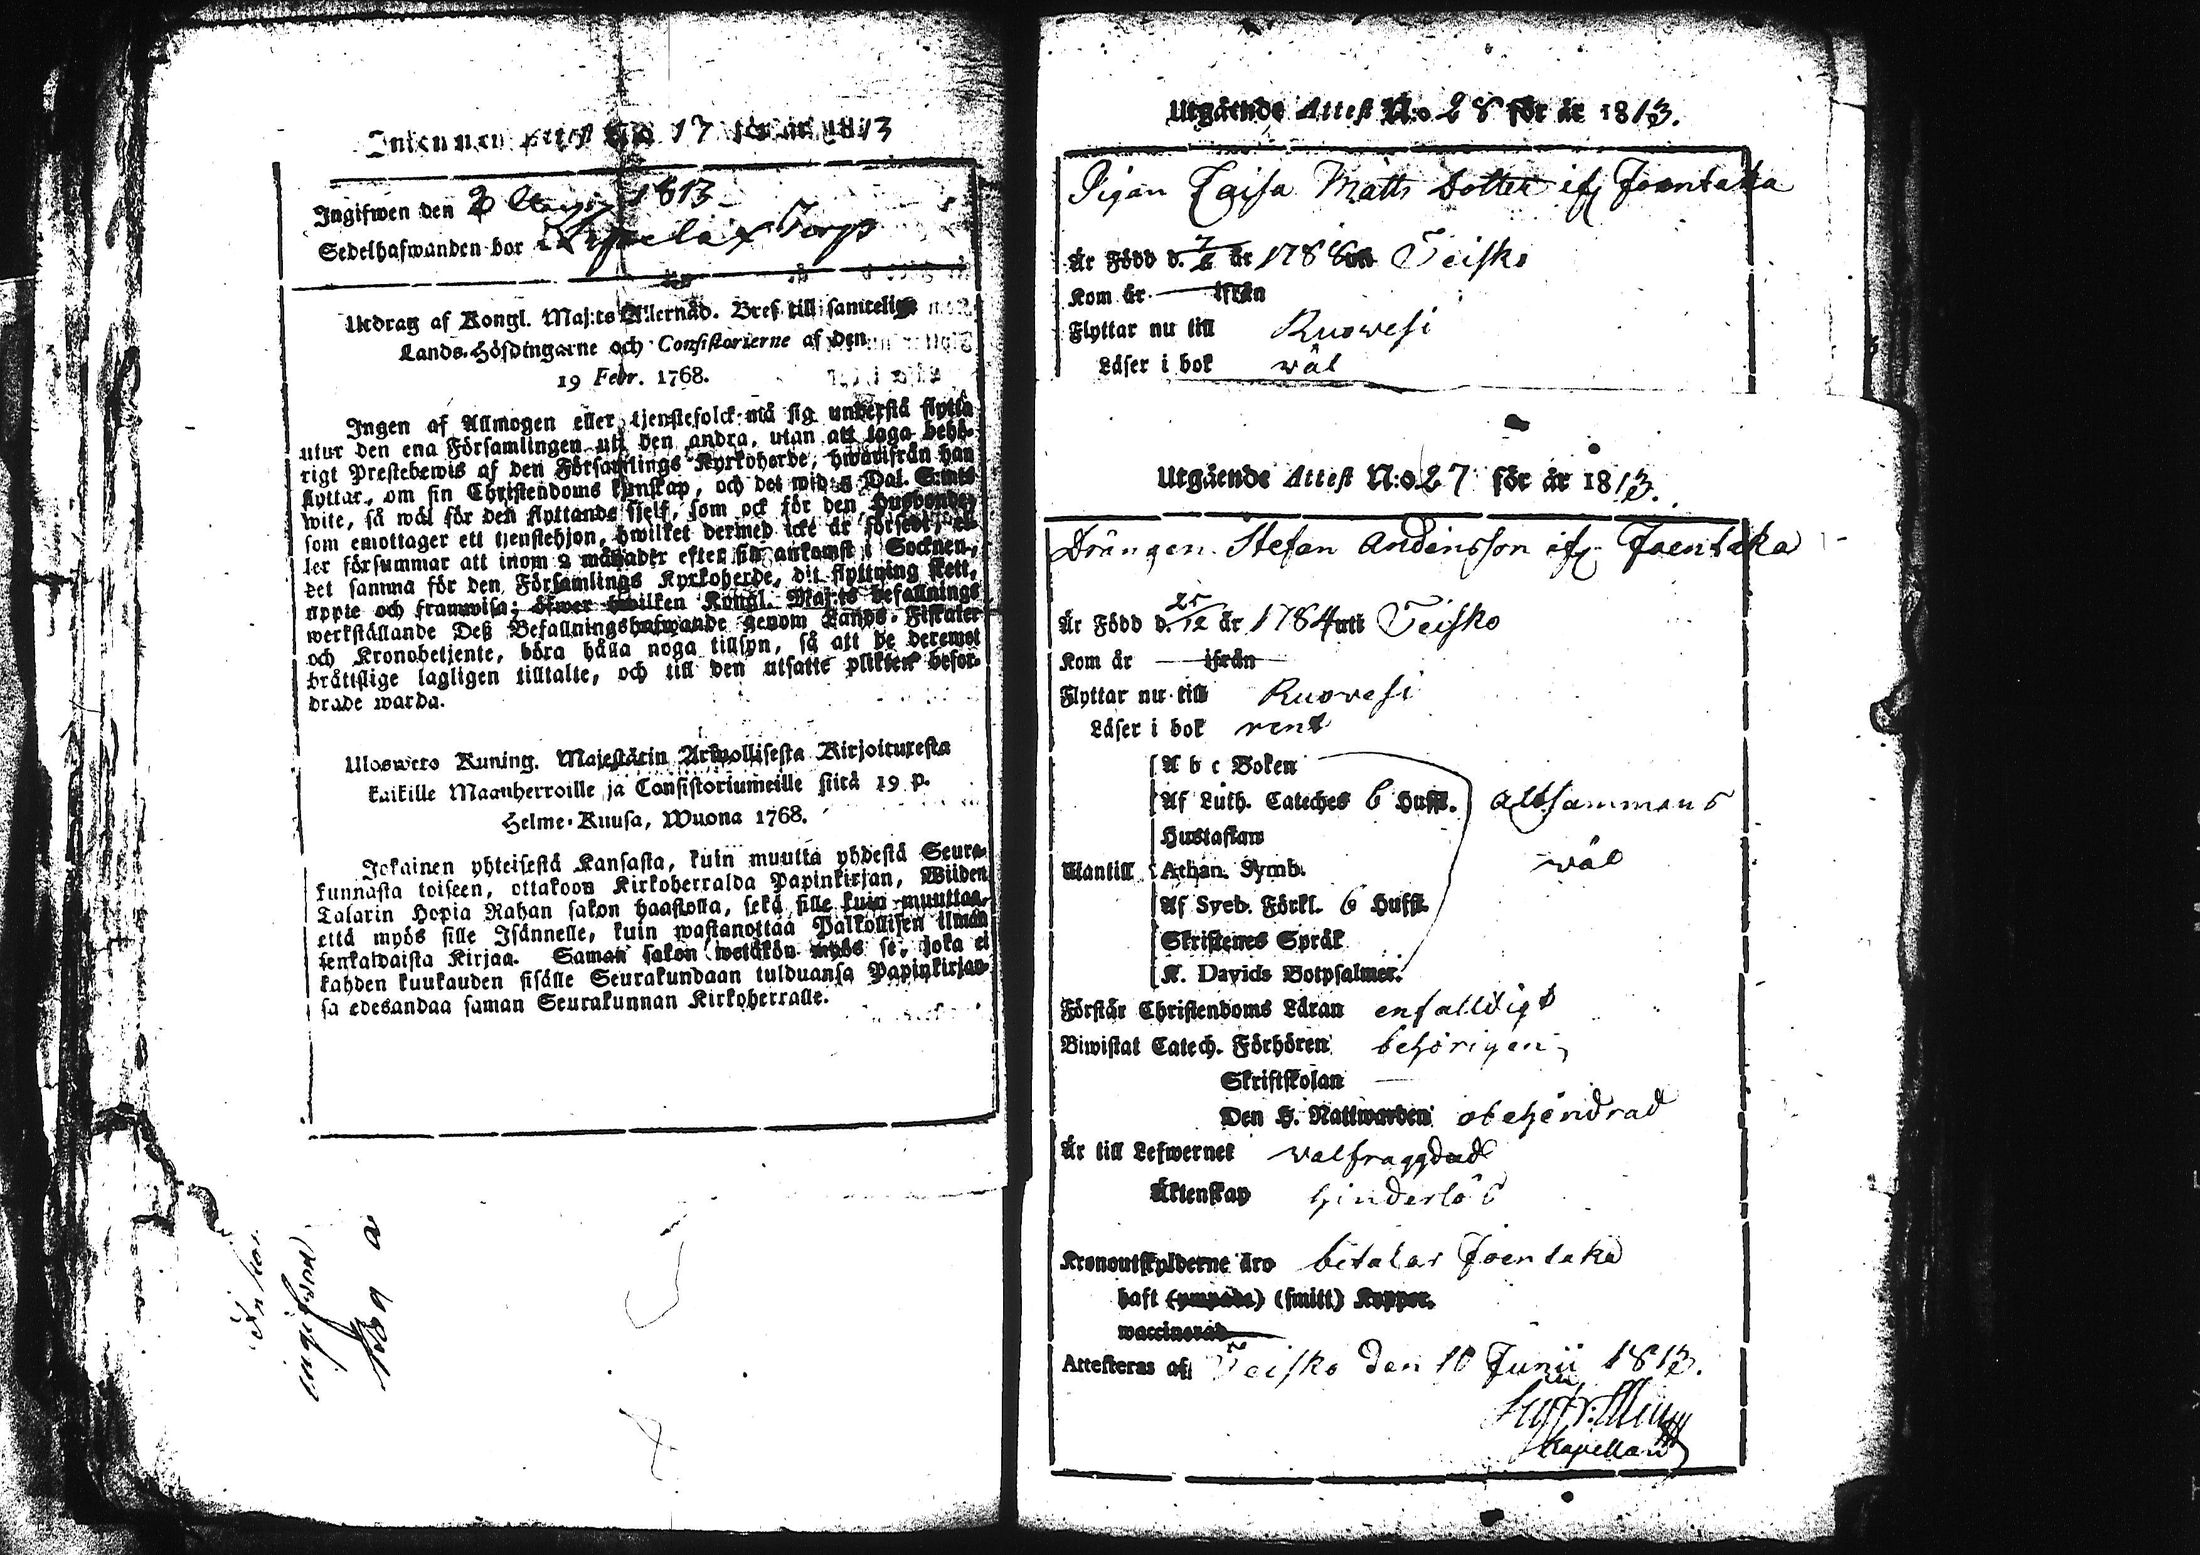 Attest No 17 för år 1813
Ingifwen den 2 1813
Sedelhafwanden bor Torp
Utdrag af Kongl. Maj:ts Allernåd. Bref till samtelige
Lands-Höfdingarne och Consistorierne af den
19 Febr. 1768.
Ingen af Allmogen eller tjenstefolck må sig understå flytta
utur den ena Församlingen uti den andra, utan att taga behö-
rigt Prestebewis af den Församlings Kyrkoherde, hwarifrån han
flyttar, om sin Christendoms kunskap, och det wid 5 Dal. S:mts
wite, så wäl för den flyttande sjelf, som ock för den Husbonde,
som emottager ett tjenstehjon, hwilket dermed icke är försedt, el-
ler försummar att inom 2 månader efter sin ankomst i Socknen,
det samma för den Församlings Kyrkoherde, dit flyttning skett,
uppte och framwisa; öfwer hwilken Kongl. Maj:ts befallnings
werkställande Deß Befallningshafwande genom Lands-Fiskaler
och Kronobetjente, böra hålla noga tillsyn, så att de deremot
bråttslige lagligen tilltalte, och till den utsatte plikten befor-
drade warda.
Uloswero Kuning. Majestätin Armollisesta Kirjoituxesta
kaikille Maanherroille ja Consistoriumeille siitä 19 p.
Helme-Kuusa, Wuona 1768.
Jokainen yhteisestä Kansasta, kuin muutta yhdestä Seura-
kunnasta toiseen, ottakoon Kirkoherralda Papinkirjan, Wiiden
Talarin Hopia Rahan sakon haastolla, sekä sille kuin muuttaa,
että myös sille Isännelle, kuin wastanottaa Palkollisen ilman
senkaltaista Kirjaa. Saman sakon wetäkön myös se, joka ei
kahden kuukauden sisälle Seurakundaan tulduansa Papinkirjan-
sa edesandaa saman Seurakunnan Kirkoherralle.
ingifwen
Utgående Attest N:o 28 för år 1813.
Pigan Caisa Matts Dotter if Joentaka
Är Född d. 7/6 år 1788 uti Teisko
Kom år — ifrån
Flyttar nu till Ruovesi
Läser i bok wäl
Utgående Attest N:o 27 för år 1813.
Drängen Stefan Andersson if Joentaka
Är Född d. 25/12 år 1784 uti Teisko
Kom år — ifrån
Flyttar nu till Ruovesi
Läser i bok rent
A b c Boken
Af Luth. Cateches 6 Hufst. altsammans
Hustaflan
Utantill Athan. Symb. wäl
Af Sveb. Förkl. 6 Hufst.
Skriftenes Språk
K. Davids Botpsalmer.
Förstår Christendoms Läran enfaldigt
Biwistat Catech. Förhören behörigen
Skriftskolan —
Den H. Nattwarden obehindrad
Är till Lefwernet wälfräggdad
Äktenskap hinderlös
Kronoutskylderne äro betalar Joentaka
haft (ympade) (smitt) Koppor.
waccinerad
Attesteras af Teisko den 10 Junii 1813.
Kapellan